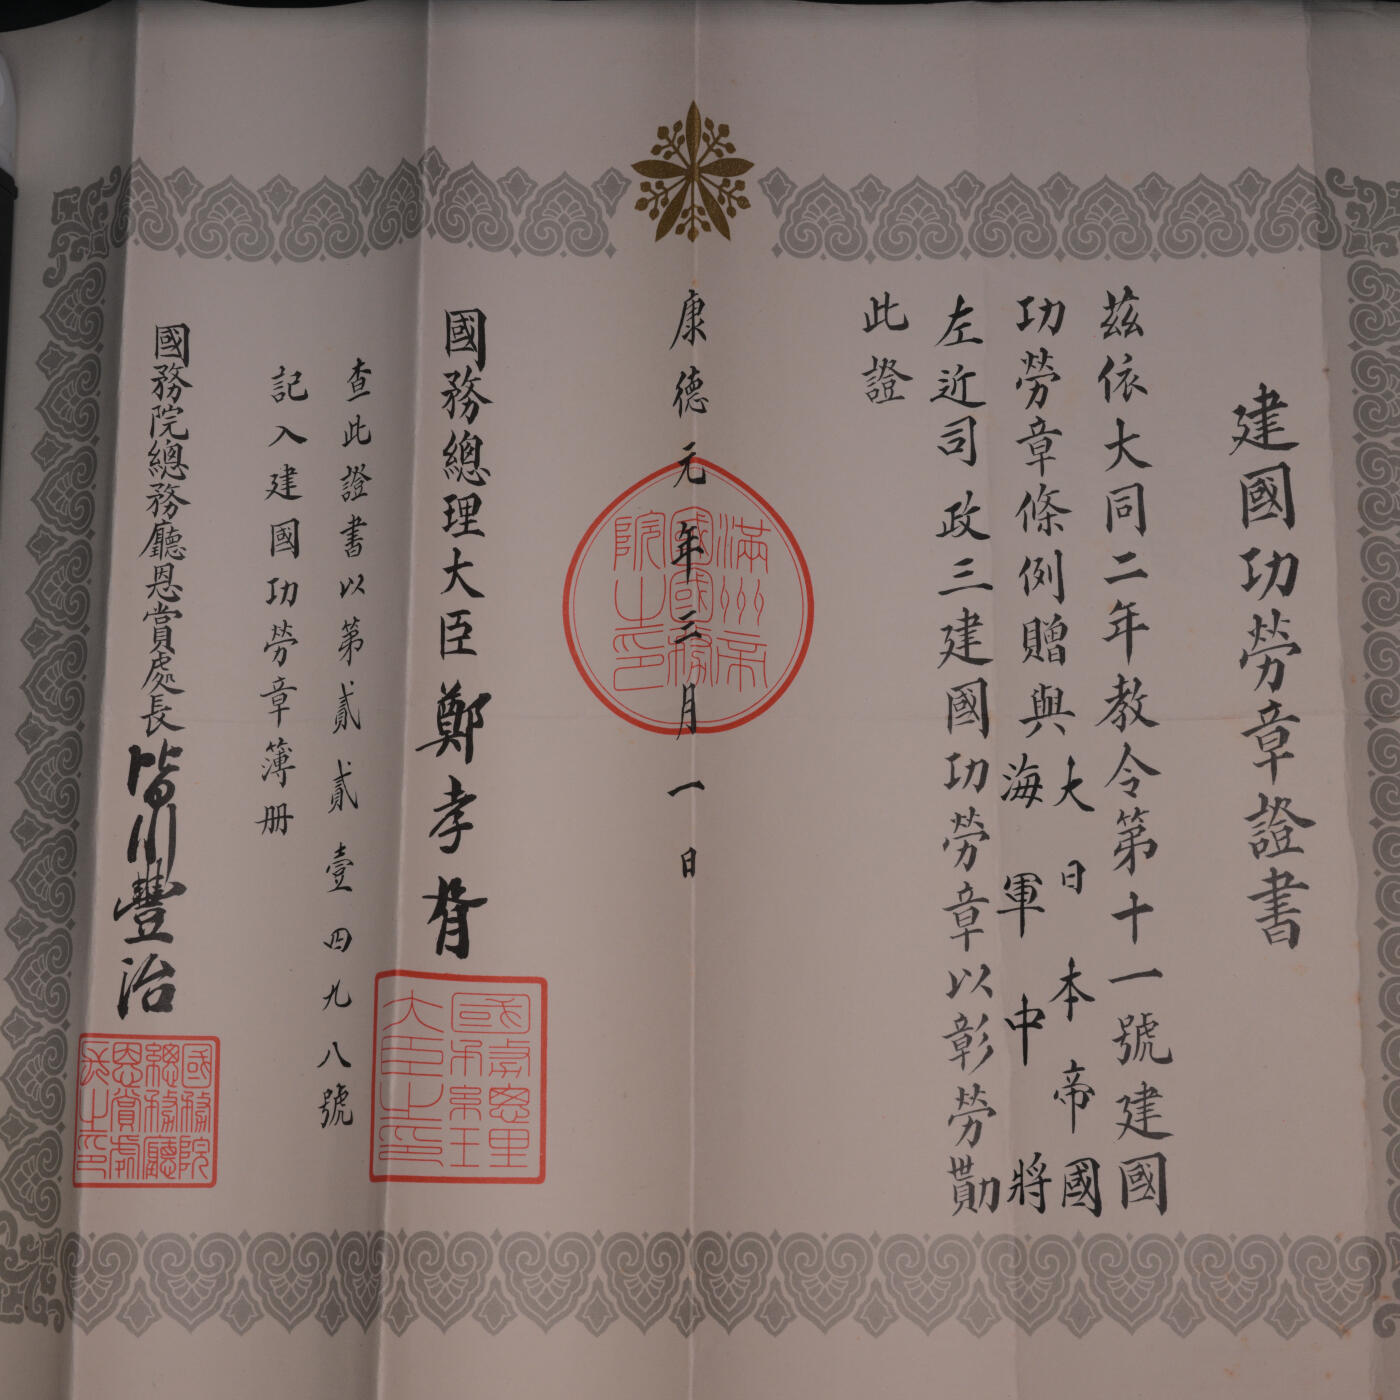 建國功勞章證書
茲依大同二年教令第十一號建國
功勞章條例贈與大日本帝國
海軍中將
左近司政三建國功勞章以彰勞勩
此證
康德元年三月一日
滿洲帝國國務院之印
國務總理大臣鄭孝胥
國務總理大臣之印
查此證書以第貳貳壹四九八號
記入建國功勞章簿册
國務院總務廳恩賞處長皆川豐治
國務院總務廳恩賞處長之印